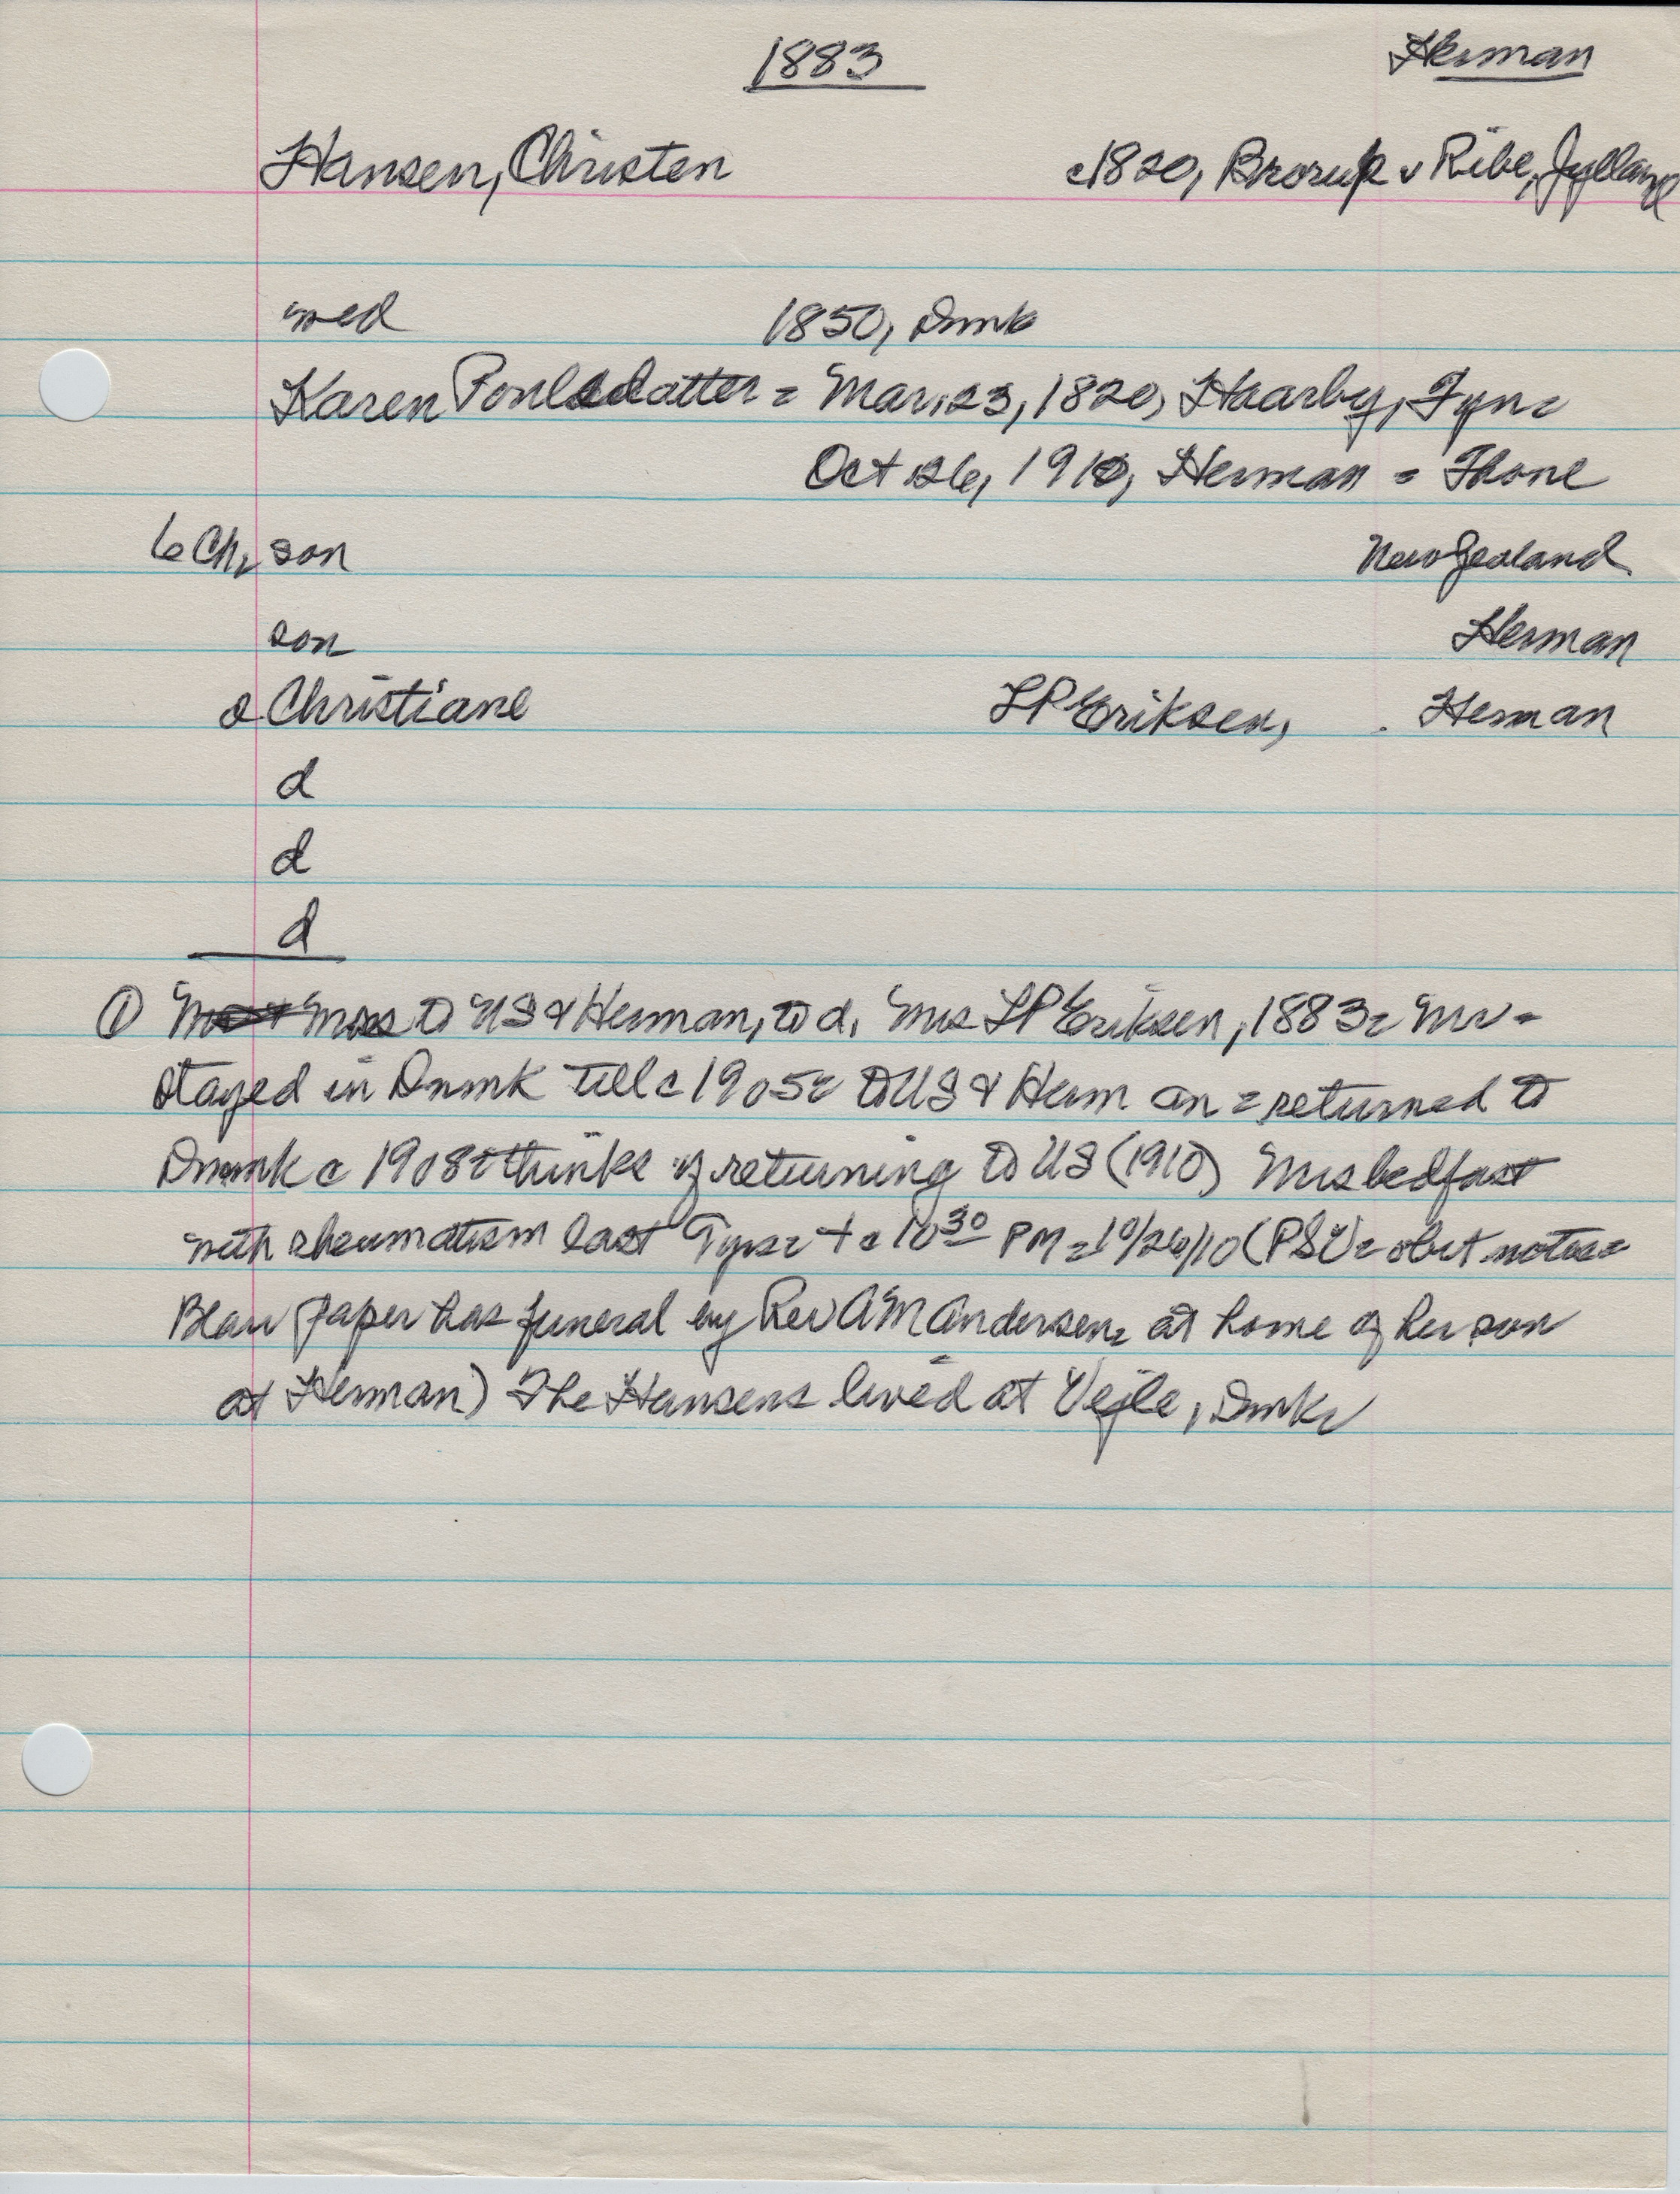 1883 Herman
Hansen, Christen c1820, Brorup v Ribe, Jylland
wed 1850, Dnmk
Karen Poulsdatter = Mar. 23, 1820, Haarby, Fyn =
Oct 26, 1910, Herman = Thone
6 Ch, son New Zealand
son Herman
d Christiane LP Eriksen, Herman
d
d
d
① Mrs to US & Herman, to d, Mrs LP Eriksen, 1883 = Mr =
stayed in Dnmk till c 1905 = to US & Herman = returned to
Dnmk c 1908 = thinks of returning to US (1910) Mrs bedfast
with rheumatism last = † c 10 30 PM = 10/26/10 (PSV = obit notes =
Blair paper has funeral by Rev AM Andersen, at home of her son
at Herman) The Hansens lived at Vejle, Dnmk